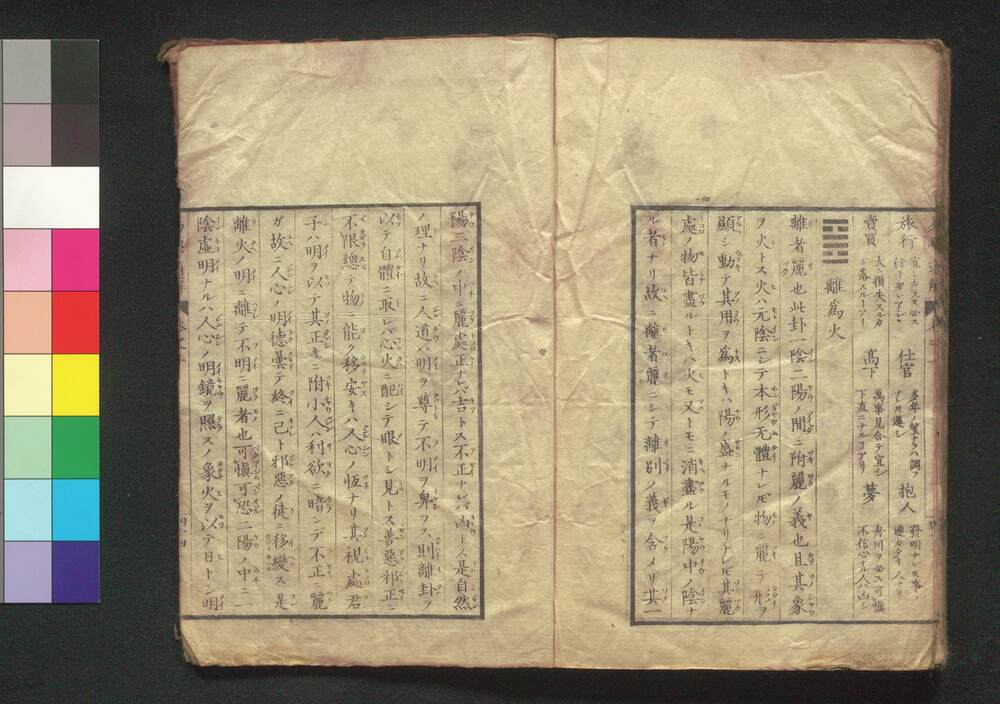 旅行
仕官
抱人
賣買
大ニ損失スルカ
高下
萬事見合テ宜シ
夢
離爲火
離者麗也此卦一陰二陽ノ間ニ附麗ノ義也且其象
ヲ火トス火ハ元陰ニシテ本形无體ナレ𪜈物ニ麗テ形ヲ
顯シ動テ其用ヲ爲トキハ陽ノ盛ナルモノナリナレ𪜈其麗
處ノ物皆盡ルトキハ火モ又トモニ消盡ル是陽中ノ陰ナ
ル者ナリ故ニ離者麗ニシテ離別ノ義ヲ含メリ其一
陽二陰ノ中ニ麗處正ナレバ吉トス不正ナレバ凶トス是自然
ノ理ナリ故ニ人道ハ明ヲ尊テ不明ヲ卑ヲス則離卦ヲ
以テ自體ニ取レバ心火ニ配シテ眼トシ見トス善惡邪正ニ
不限總テ物ニ能ク移安キハ人心ノ恆ナリ其視處君
子ハ明ヲ以テ其正キニ附小人ハ利欲ニ暗ンデ不正ニ麗
ガ故ニ人心ノ明德曇テ終ニ己ト邪惡ノ徒ニ移變ス是
離火ノ明ニ離テ不明ニ麗者也可愼可恐二陽ノ中ニ一
陰虛明ナルハ人心ノ明鏡ヲ照スノ象火ヲ以テ日トシ明